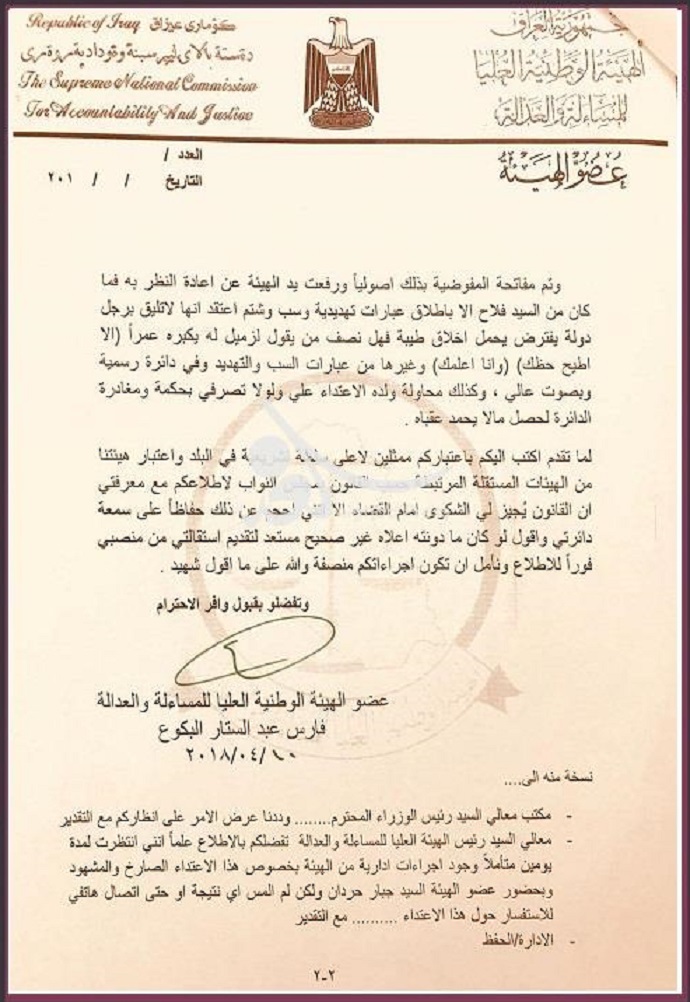 Republic of Iraq كۆماری عێراق
The Supreme National Commission
For Accountability And Justice
جمهورية العراق
الهيئة الوطنية العليا
للمساءلة والعدالة
عضو الهيئة
العدد /
التاريخ / / ٢٠١
وتم مفاتحة المفوضية بذلك اصولياً ورفعت يد الهيئة عن اعادة النظر به فما
كان من السيد فلاح الا باطلاق عبارات تهديدية وسب وشتم اعتقد انها لاتليق برجل
دولة يفترض يحمل اخلاق طيبة فهل نصف من يقول لزميل له يكبره عمراً (الا
اطيح حظك) (وانا اعلمك) وغيرها من عبارات السب والتهديد وفي دائرة رسمية
وبصوت عالي ، وكذلك محاولة ولده الاعتداء علي ولولا تصرفي بحكمة ومغادرة
الدائرة لحصل مالا يحمد عقباه .
لما تقدم اكتب اليكم باعتباركم ممثلين لاعلى سلطة تشريعية في البلد واعتبار هيئتنا
من الهيئات المستقلة المرتبطة حسب القانون بمجلس النواب لاطلاعكم مع معرفتي
ان القانون يُجيز لي الشكوى امام القضاء الا انني احجم عن ذلك حفاظاً على سمعة
دائرتي واقول لو كان ما دونته اعلاه غير صحيح مستعد لتقديم استقالتي من منصبي
فوراً للاطلاع ونأمل ان تكون اجراءاتكم منصفة والله على ما اقول شهيد .
وتفضلو بقبول وافر الاحترام
عضو الهيئة الوطنية العليا للمساءلة والعدالة
فارس عبد الستار البكوع
٢٠١٨/٠٤/١٠
نسخة منه الى....
- مكتب معالي السيد رئيس الوزراء المحترم........ وددنا عرض الامر على انظاركم مع التقدير
- معالي السيد رئيس الهيئة العليا للمساءلة والعدالة تفضلكم بالاطلاع علماً انني انتظرت لمدة
يومين متأملاً وجود اجراءات ادارية من الهيئة بخصوص هذا الاعتداء الصارخ والمشهود
وبحضور عضو الهيئة السيد جبار حردان ولكن لم المس اي نتيجة او حتى اتصال هاتفي
للاستفسار حول هذا الاعتداء .......... مع التقدير
- الادارة/الحفظ
٢-٢